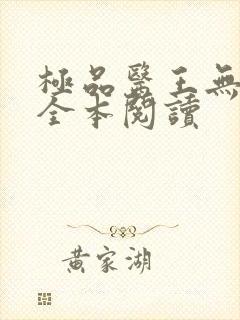 極品醫王無
全本閱讀
黃家湖